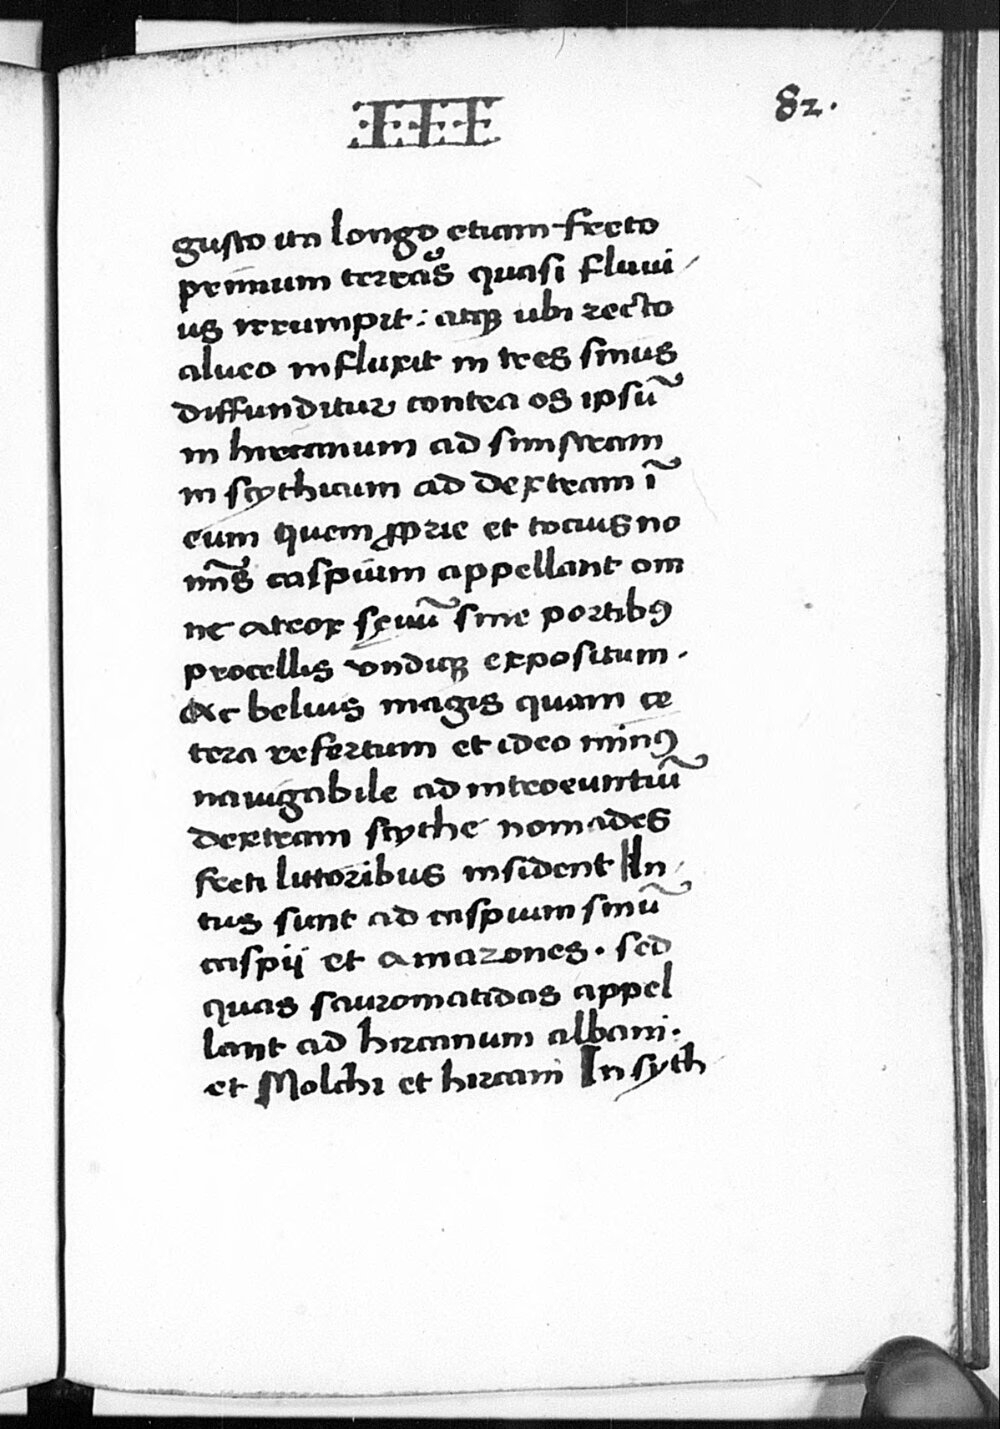 III
82.
gusto ita longo etiam freto
primum terras quasi fluui
us irrumpit: atqꝫ ubi recto
alueo influxit in tres sinus
diffunditur contra os ipsũ
in hircanum ad sinistram
in scythicum ad dextram ĩ
eum quem ꝓprie et tocius no
mĩs caspium appellant om
ne atrox sęuũ sine portibꝯ
procellis undiqꝫ expositum.
Ac beluis magis quam ce
tera refertum et ideo minꝯ
nauigabile ad introeuntiũ
dextram scythe nomades
freti littoribus insident In
tus sunt ad caspium sinũ
caspij et amazones. sed
quas sauromatidas appel
lant ad hircanum albani.
et Molchi et hircani In syth